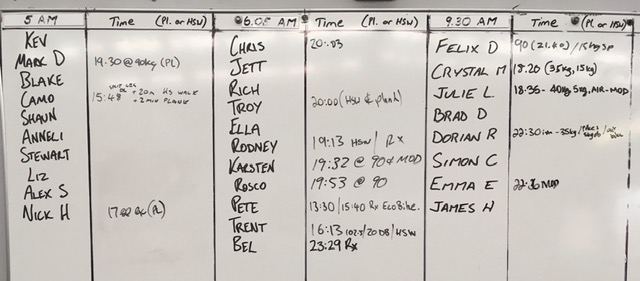 5 AM Time (PL. or HSW)
KEV
MARK D 19.30 @ 90kg (PL)
BLAKE
CAMO 15:48 + 20m HS WALK + 2 MIN PLANK
SHAUN
ANNELI
STEWART
LIZ
ALEX S
NICK H (PL)
6.05 AM Time (PL. or HSW)
CHRIS 20:03
JETT
RICH
TROY 20:00 (HSW & plank)
ELLA
RODNEY 19:13 HSW / Rx
KARSTEN 19:32 @ 90 & MOD
ROSCO 19:53 @ 90
PETE 13:30/15:40 Rx EcoBike.
TRENT 16:13 102.5/20DB/HSW
BEL 23:29 Rx
9.30 AM Time (PL. or HSW)
FELIX D 90 (21.40) /15kg SP
CRYSTAL M 18.20 (35kg, 15kg)
JULIE L. 18:35 - 40kg 5kg, AIR-MOD
BRAD D
DORIAN R 22:30 - 35kg
SIMON C
EMMA E MOD
JAMES H